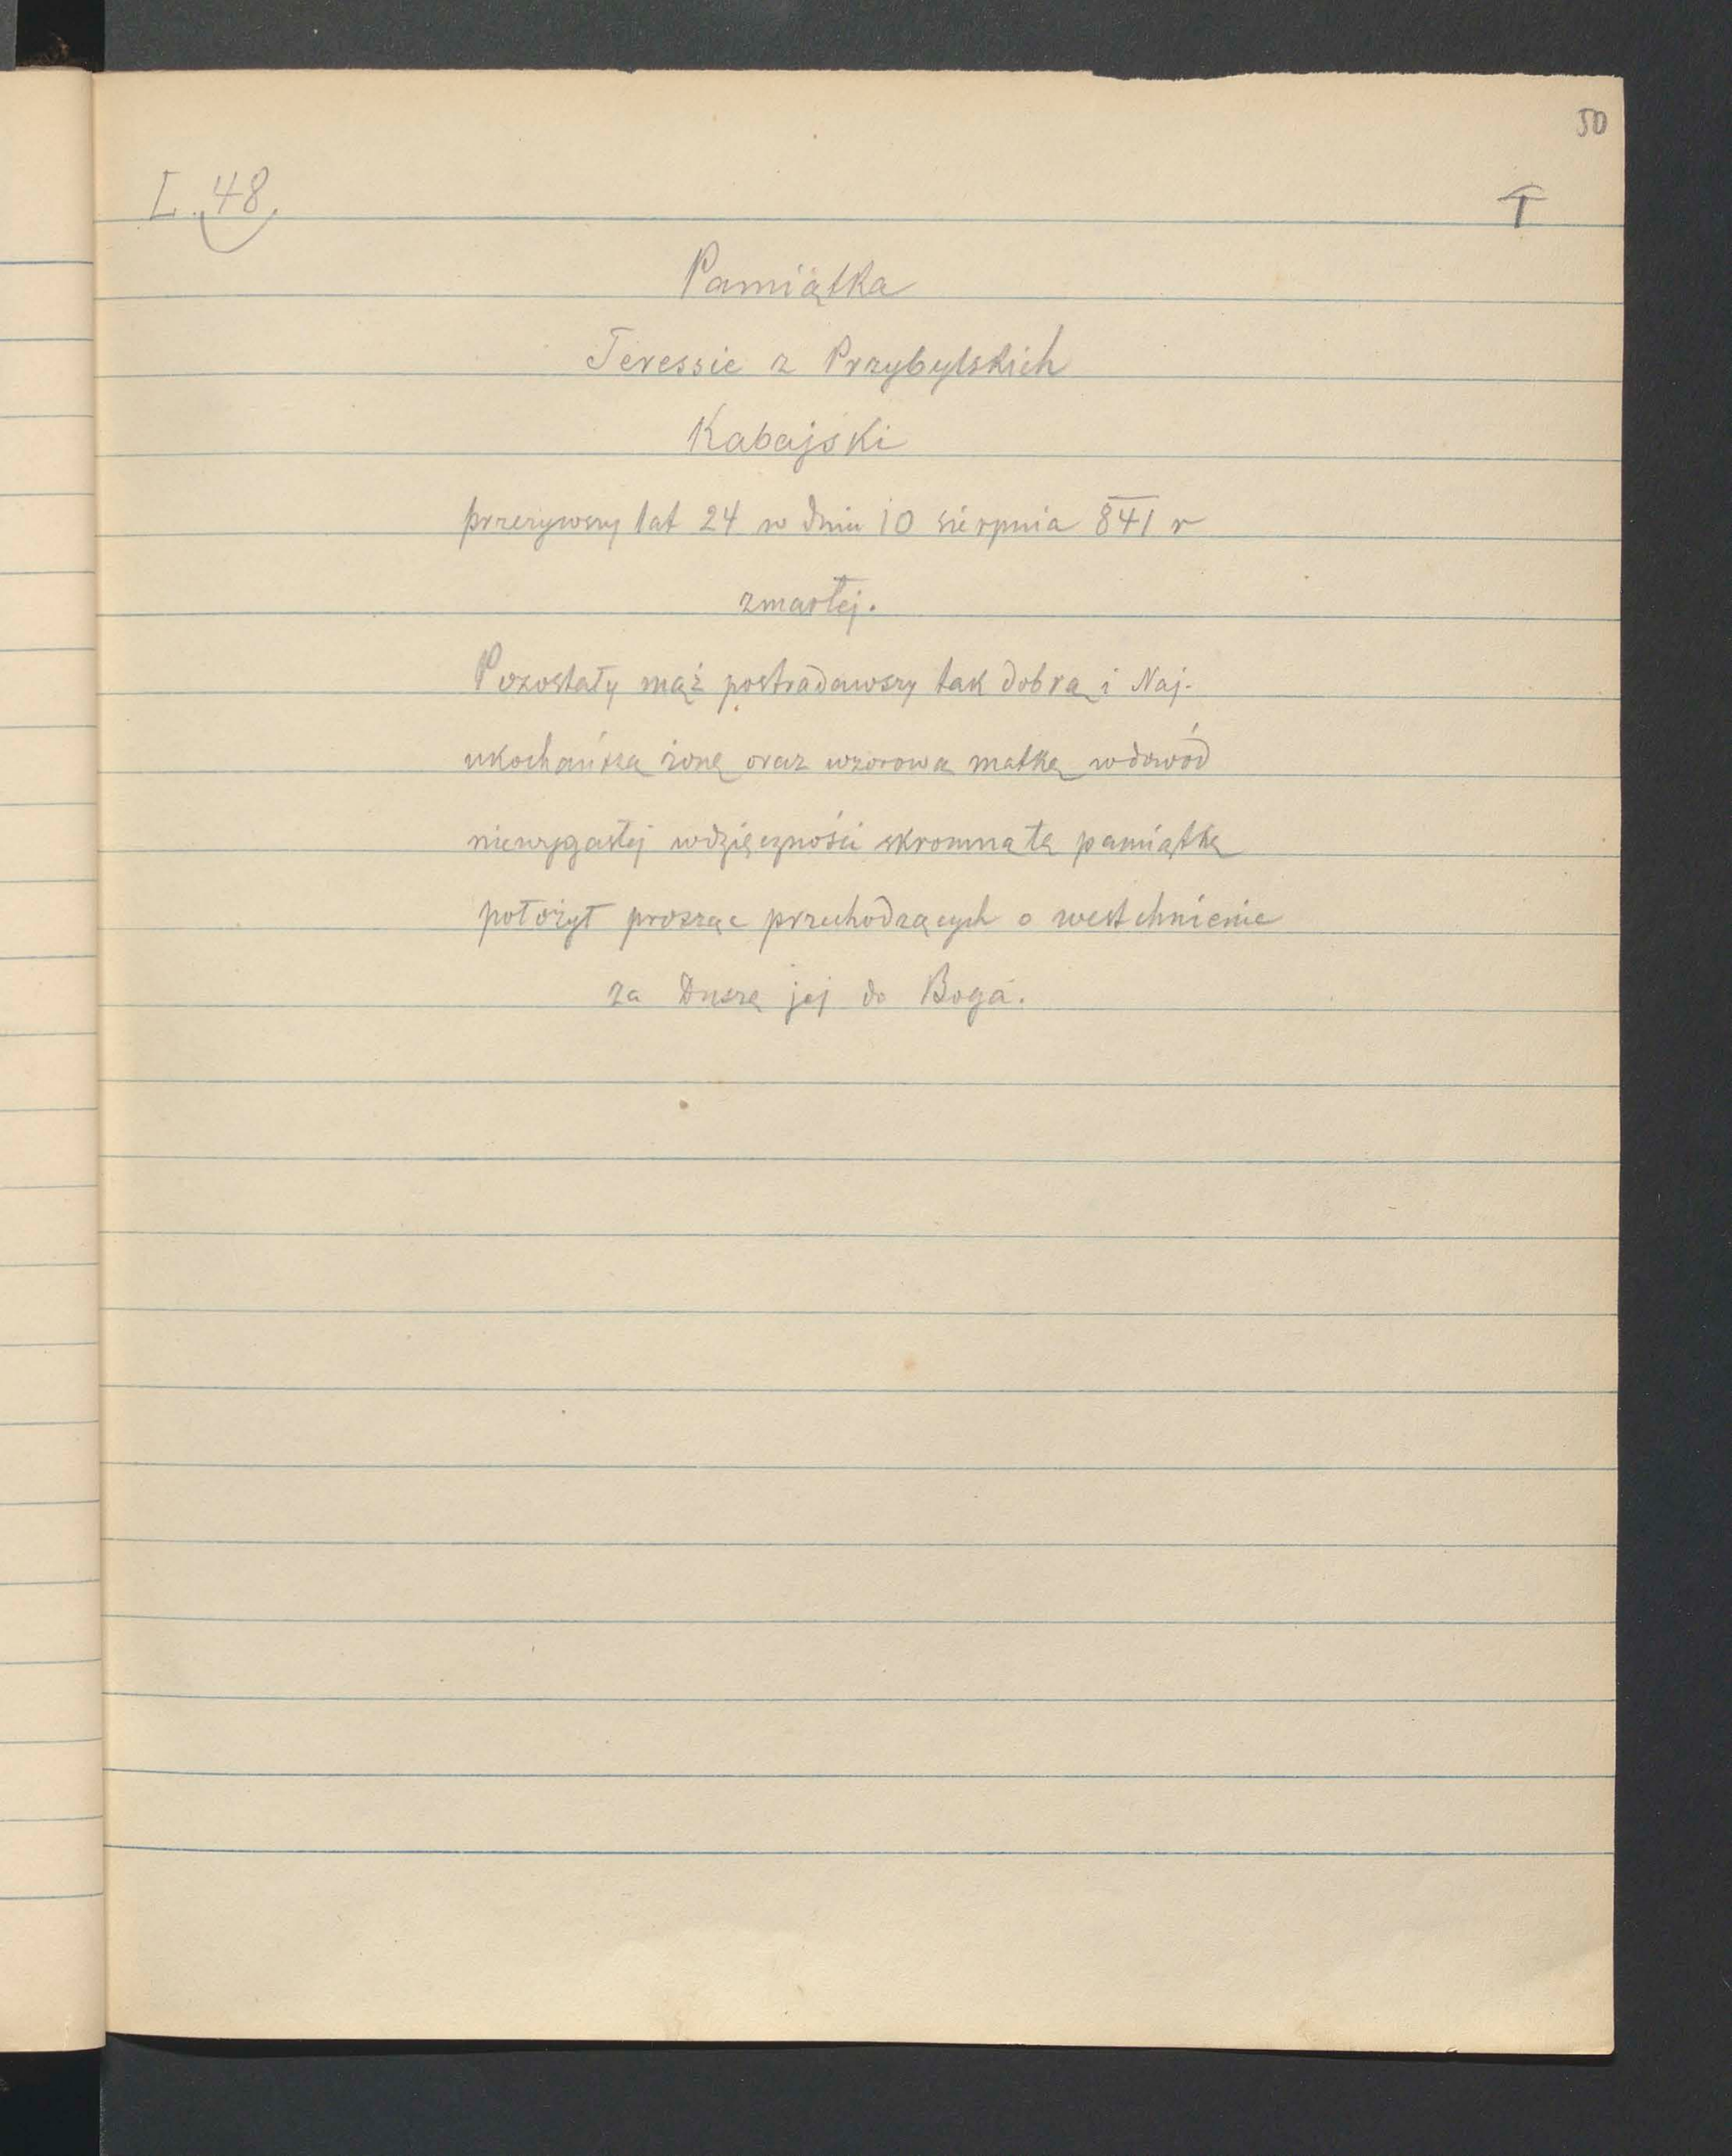 50
L. 48.
T
Pamiątka
Teressie z Przybylskich
Kabajski
przeżywszy lat 24 w dniu 10 sierpnia 841 r
zmarłej.
Pozostały mąż postradawszy tak dobrą i Naj-
ukochańszą żonę oraz wzorową matkę w dowód
niewygasłej wdzięczności skromną tę pamiątkę
położył prosząc przechodzących o westchnienie
za Duszę jej do Boga.